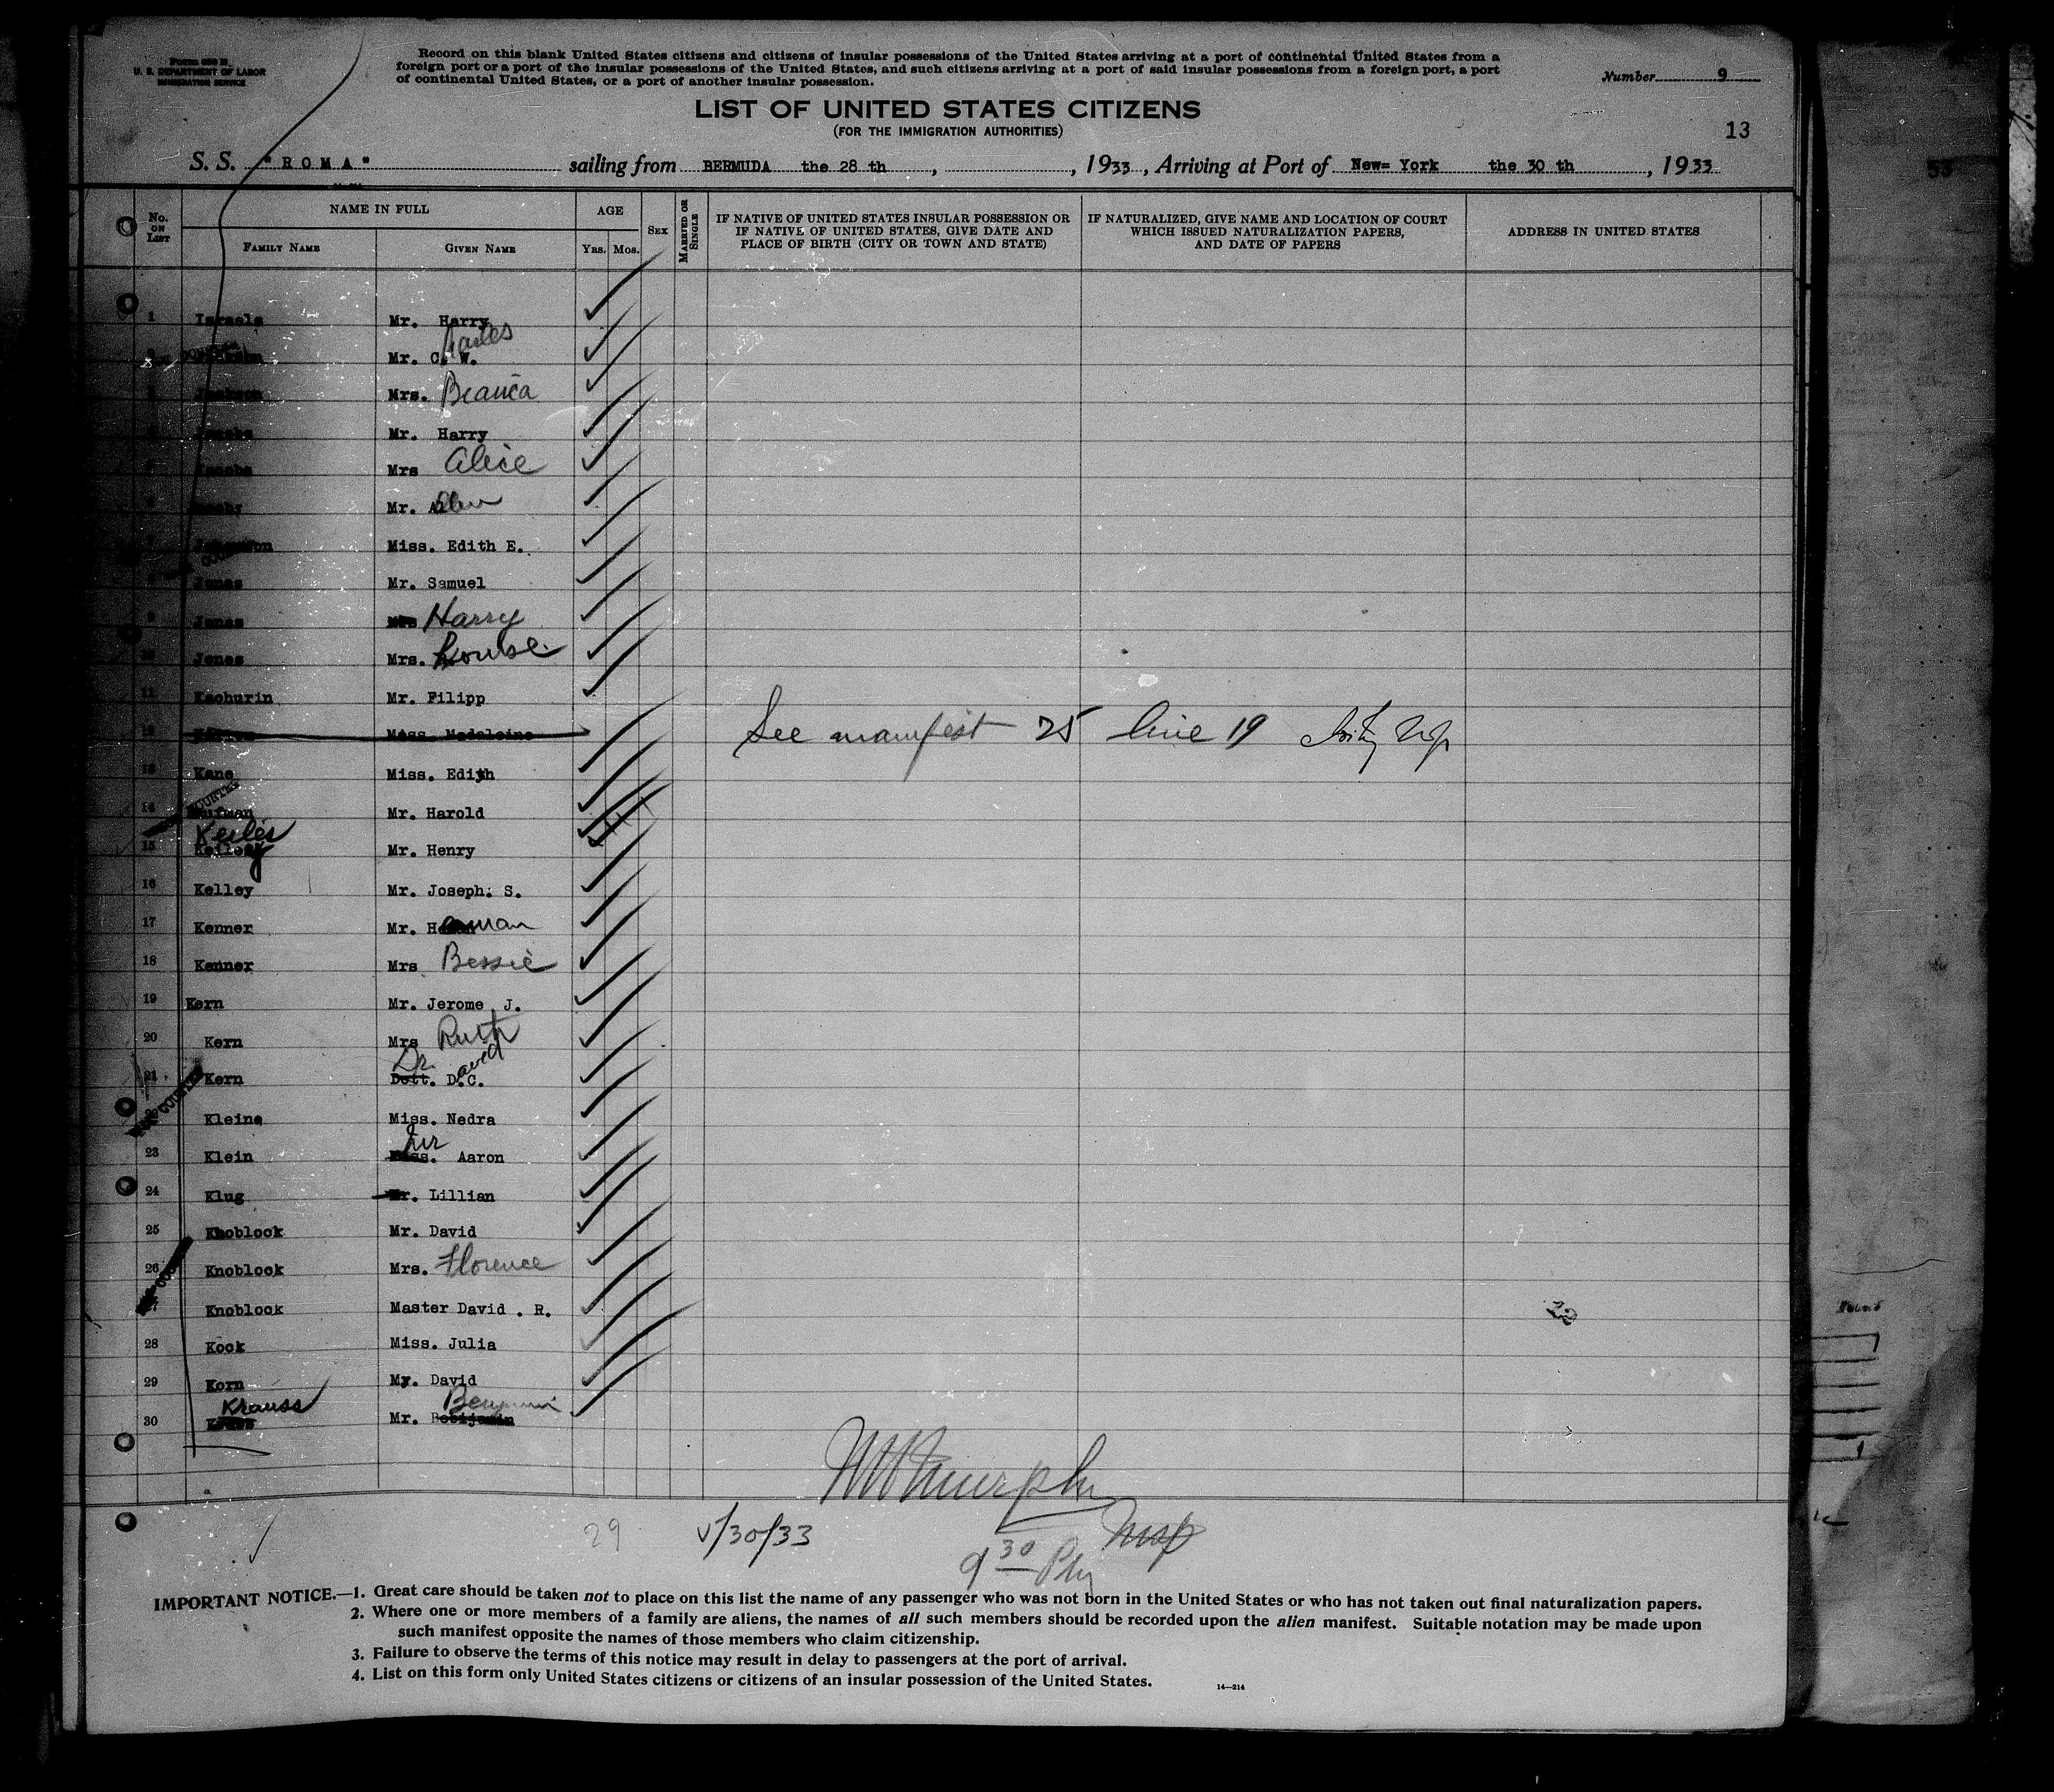 Form 630 B
U. S. DEPARTMENT OF LABOR
IMMIGRATION SERVICE
Record on this blank United States citizens and citizens of insular possessions of the United States arriving at a port of continental United States from a
foreign port or a port of the insular possessions of the United States, and such citizens arriving at a port of said insular possessions from a foreign port, a port
of continental United States, or a port of another insular possession.
Number 9
LIST OF UNITED STATES CITIZENS
(FOR THE IMMIGRATION AUTHORITIES)
13
S. S. "ROMA" sailing from BERMUDA the 28 th, , 1933, Arriving at Port of New= York the 30 th, 1933
No. ON LIST
NAME IN FULL
FAMILY NAME
GIVEN NAME
AGE
YRS. MOS.
SEX
MARRIED OR SINGLE
IF NATIVE OF UNITED STATES INSULAR POSSESSION OR
IF NATIVE OF UNITED STATES, GIVE DATE AND
PLACE OF BIRTH (CITY OR TOWN AND STATE)
IF NATURALIZED, GIVE NAME AND LOCATION OF COURT
WHICH ISSUED NATURALIZATION PAPERS,
AND DATE OF PAPERS
ADDRESS IN UNITED STATES
1 Israels Mr. Harry
Mr. C. W.
Jackson Mrs. Bianca
Jacobs Mr. Harry
Jacobs Mrs Alice
Mr.
Miss. Edith E.
Jonas Mr. Samuel
9 Jonas Harry
10 Jonas Mrs. Louise
11 Kachurin Mr. Filipp
12 Miss. Madaleine See manifest 25 line 19
13 Kane Miss. Edith
14 Mr. Harold
15 Mr. Henry
16 Kelley Mr. Joseph. S.
17 Kenner Mr. Herman
18 Kenner Mrs Bessie
19 Kern Mr. Jerome J.
20 Kern Mrs Ruth
21 Kern Dr. Dott. D.C. David
22 Kleine Miss. Nedra
23 Klein Mr Miss. Aaron
24 Klug Mr. Lillian
25 Knoblock Mr. David
26 Knoblock Mrs. Florence
27 Knoblock Master David . R.
28 Kock Miss. Julia
29 Korn Mr. David
30 Krauss Mr. Benjamin
29
V/30/33
9 30 Pm
IMPORTANT NOTICE.—1. Great care should be taken not to place on this list the name of any passenger who was not born in the United States or who has not taken out final naturalization papers.
2. Where one or more members of a family are aliens, the names of all such members should be recorded upon the alien manifest. Suitable notation may be made upon
such manifest opposite the names of those members who claim citizenship.
3. Failure to observe the terms of this notice may result in delay to passengers at the port of arrival.
4. List on this form only United States citizens or citizens of an insular possession of the United States.
14—214